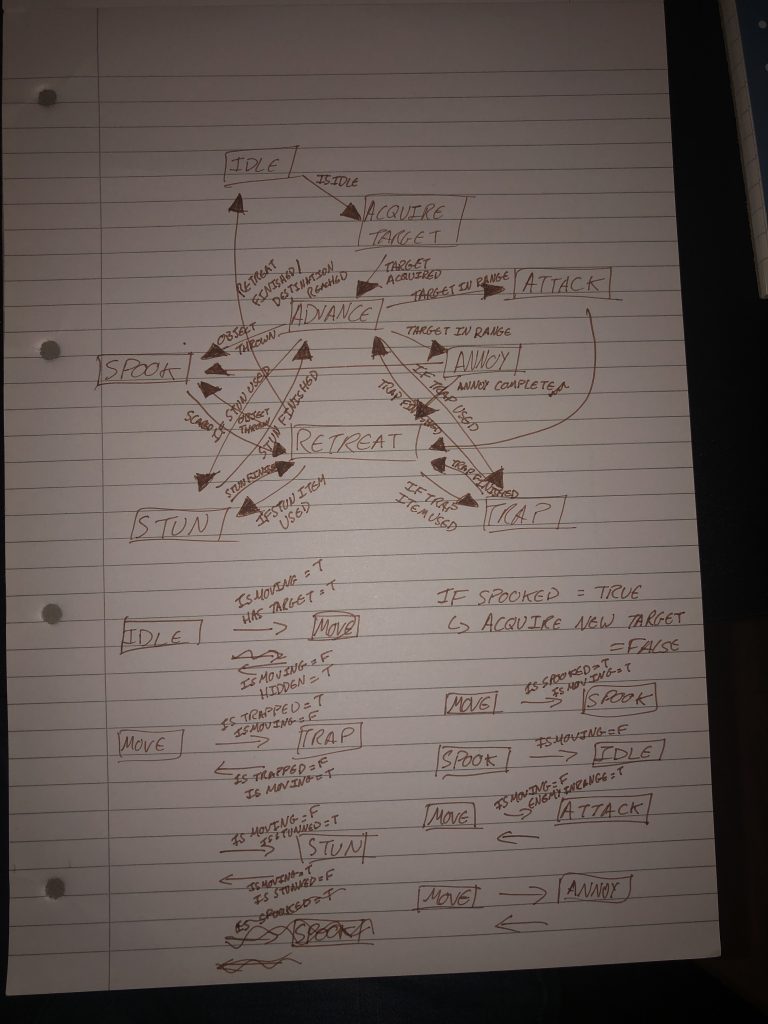 IDLE
IS IDLE
ACQUIRE
TARGET
RETREAT
FINISHED/
DESTINATION
REACHED
TARGET
ACQUIRED
TARGET IN RANGE
ATTACK
ADVANCE
OBJECT
THROWN
TARGET IN RANGE
SPOOK
ANNOY
ANNOY COMPLETE
IF STUN USED
STUN FINISHED
IF TRAP USED
TRAP FINISHED
OBJECT
THROWN
RETREAT
STUN FINISHED
TRAP FINISHED
IF STUN ITEM
USED
IF TRAP
ITEM USED
STUN
TRAP
IS MOVING = T
HAS TARGET = T
IDLE
MOVE
IS MOVING = F
HIDDEN = T
IF SPOOKED = TRUE
↳ ACQUIRE NEW TARGET
= FALSE
IS TRAPPED = T
IS MOVING = F
MOVE
TRAP
IS TRAPPED = F
IS MOVING = T
IS SPOOKED = T
IS MOVING = T
MOVE
SPOOK
IS MOVING = F
SPOOK
IDLE
IS MOVING = F
IS STUNNED = T
STUN
IS MOVING = T
IS STUNNED = F
IS MOVING = F
ENEMY IN RANGE = T
MOVE
ATTACK
IS SPOOKED = T
SPOOK
MOVE
ANNOY